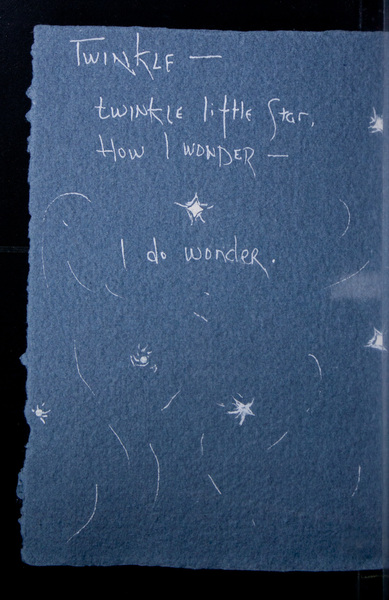 Twinkle —
twinkle little Star,
How I wonder —
I do wonder.